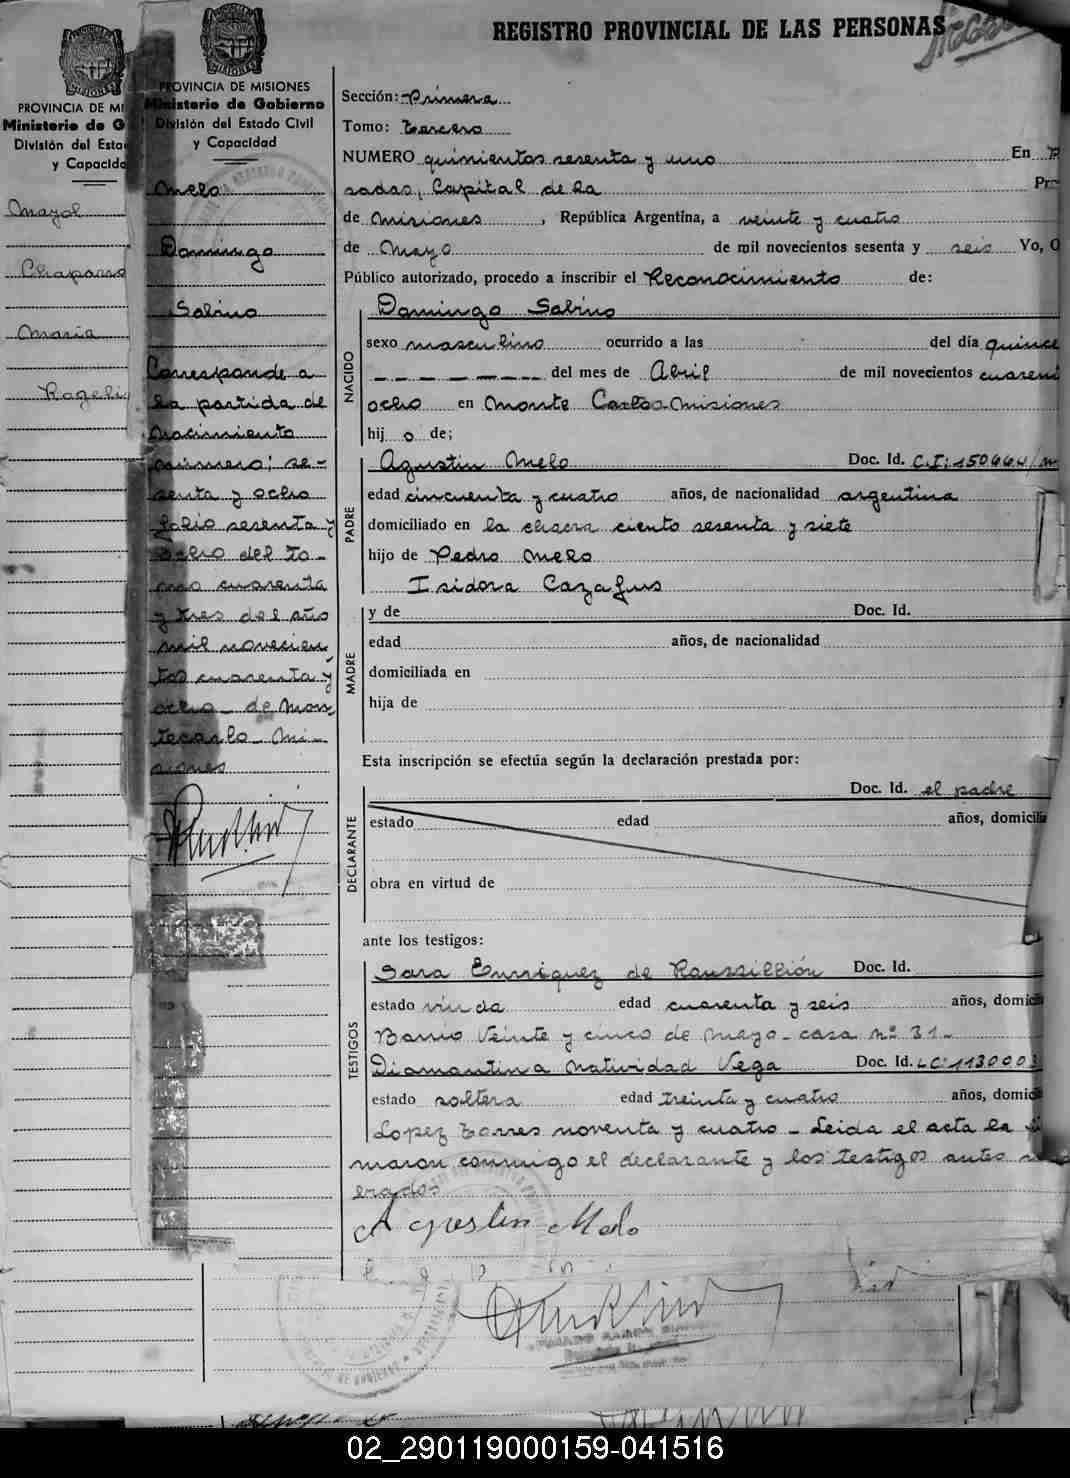 REGISTRO PROVINCIAL DE LAS PERSONAS
PROVINCIA DE MI
Ministerio de G
División del Esta
y Capacida
Mayol
Chaparro
Maria
Rogeli
PROVINCIA DE MISIONES
Ministerio de Gobierno
División del Estado Civil
y Capacidad
Melo
Domingo
Sabino
Corresponde a
la partida de
nacimiento
número; se-
senta y ocho
folio sesenta y
ocho del to-
mo cuarenta
y tres del año
mil novecien
tos cuarenta y
ocho - de Mon
tecarlo - Mi-
siones
Sección: Primera
Tomo: tercero
NUMERO quinientos sesenta y uno En P
sadas, Capital de la Pr
de Misiones, República Argentina, a veinte y cuatro
de Mayo de mil novecientos sesenta y seis Yo, O
Público autorizado, procedo a inscribir el Reconocimiento de:
NACIDO
Domingo Sabino
sexo masculino ocurrido a las del día quince
del mes de Abril de mil novecientos cuaren
ocho en Monte Carlo Misiones
hijo de;
PADRE
Agustin Melo Doc. Id. C.I: 150664/m
edad cincuenta y cuatro años, de nacionalidad argentina
domiciliado en la chacra ciento sesenta y siete
hijo de Pedro Melo
Isidora Cazafus
MADRE
y de Doc. Id.
edad años, de nacionalidad
domiciliada en
hija de y
Esta inscripción se efectúa según la declaración prestada por:
DECLARANTE
Doc. Id. el padre
estado edad años, domicilia
obra en virtud de
ante los testigos:
TESTIGOS
Sara Enriquez de Roussillión Doc. Id.
estado viuda edad cuarenta y seis años, domici
Barrio Veinte y cinco de Mayo - casa nº 31-
Diamantina Natividad Vega Doc. Id. LC: 1130003
estado soltera edad treinta y cuatro años, domici
Lopez torres noventa y cuatro - Leida el acta la fi
maron conmigo el declarante y los testigos antes
erados
Agustin Melo
02_290119000159-041516